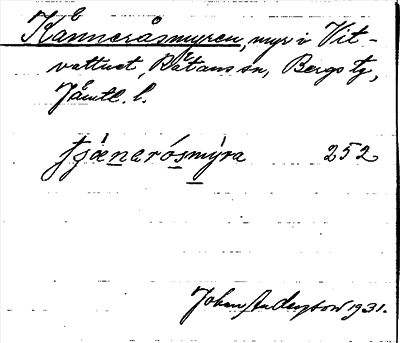 Kånneråsmyren, myr i Vit-
vattnet, Rätans sn, Bergs tg,
Jämtl. l.
tjånerósmýra 252
Johan Anderson 1931.